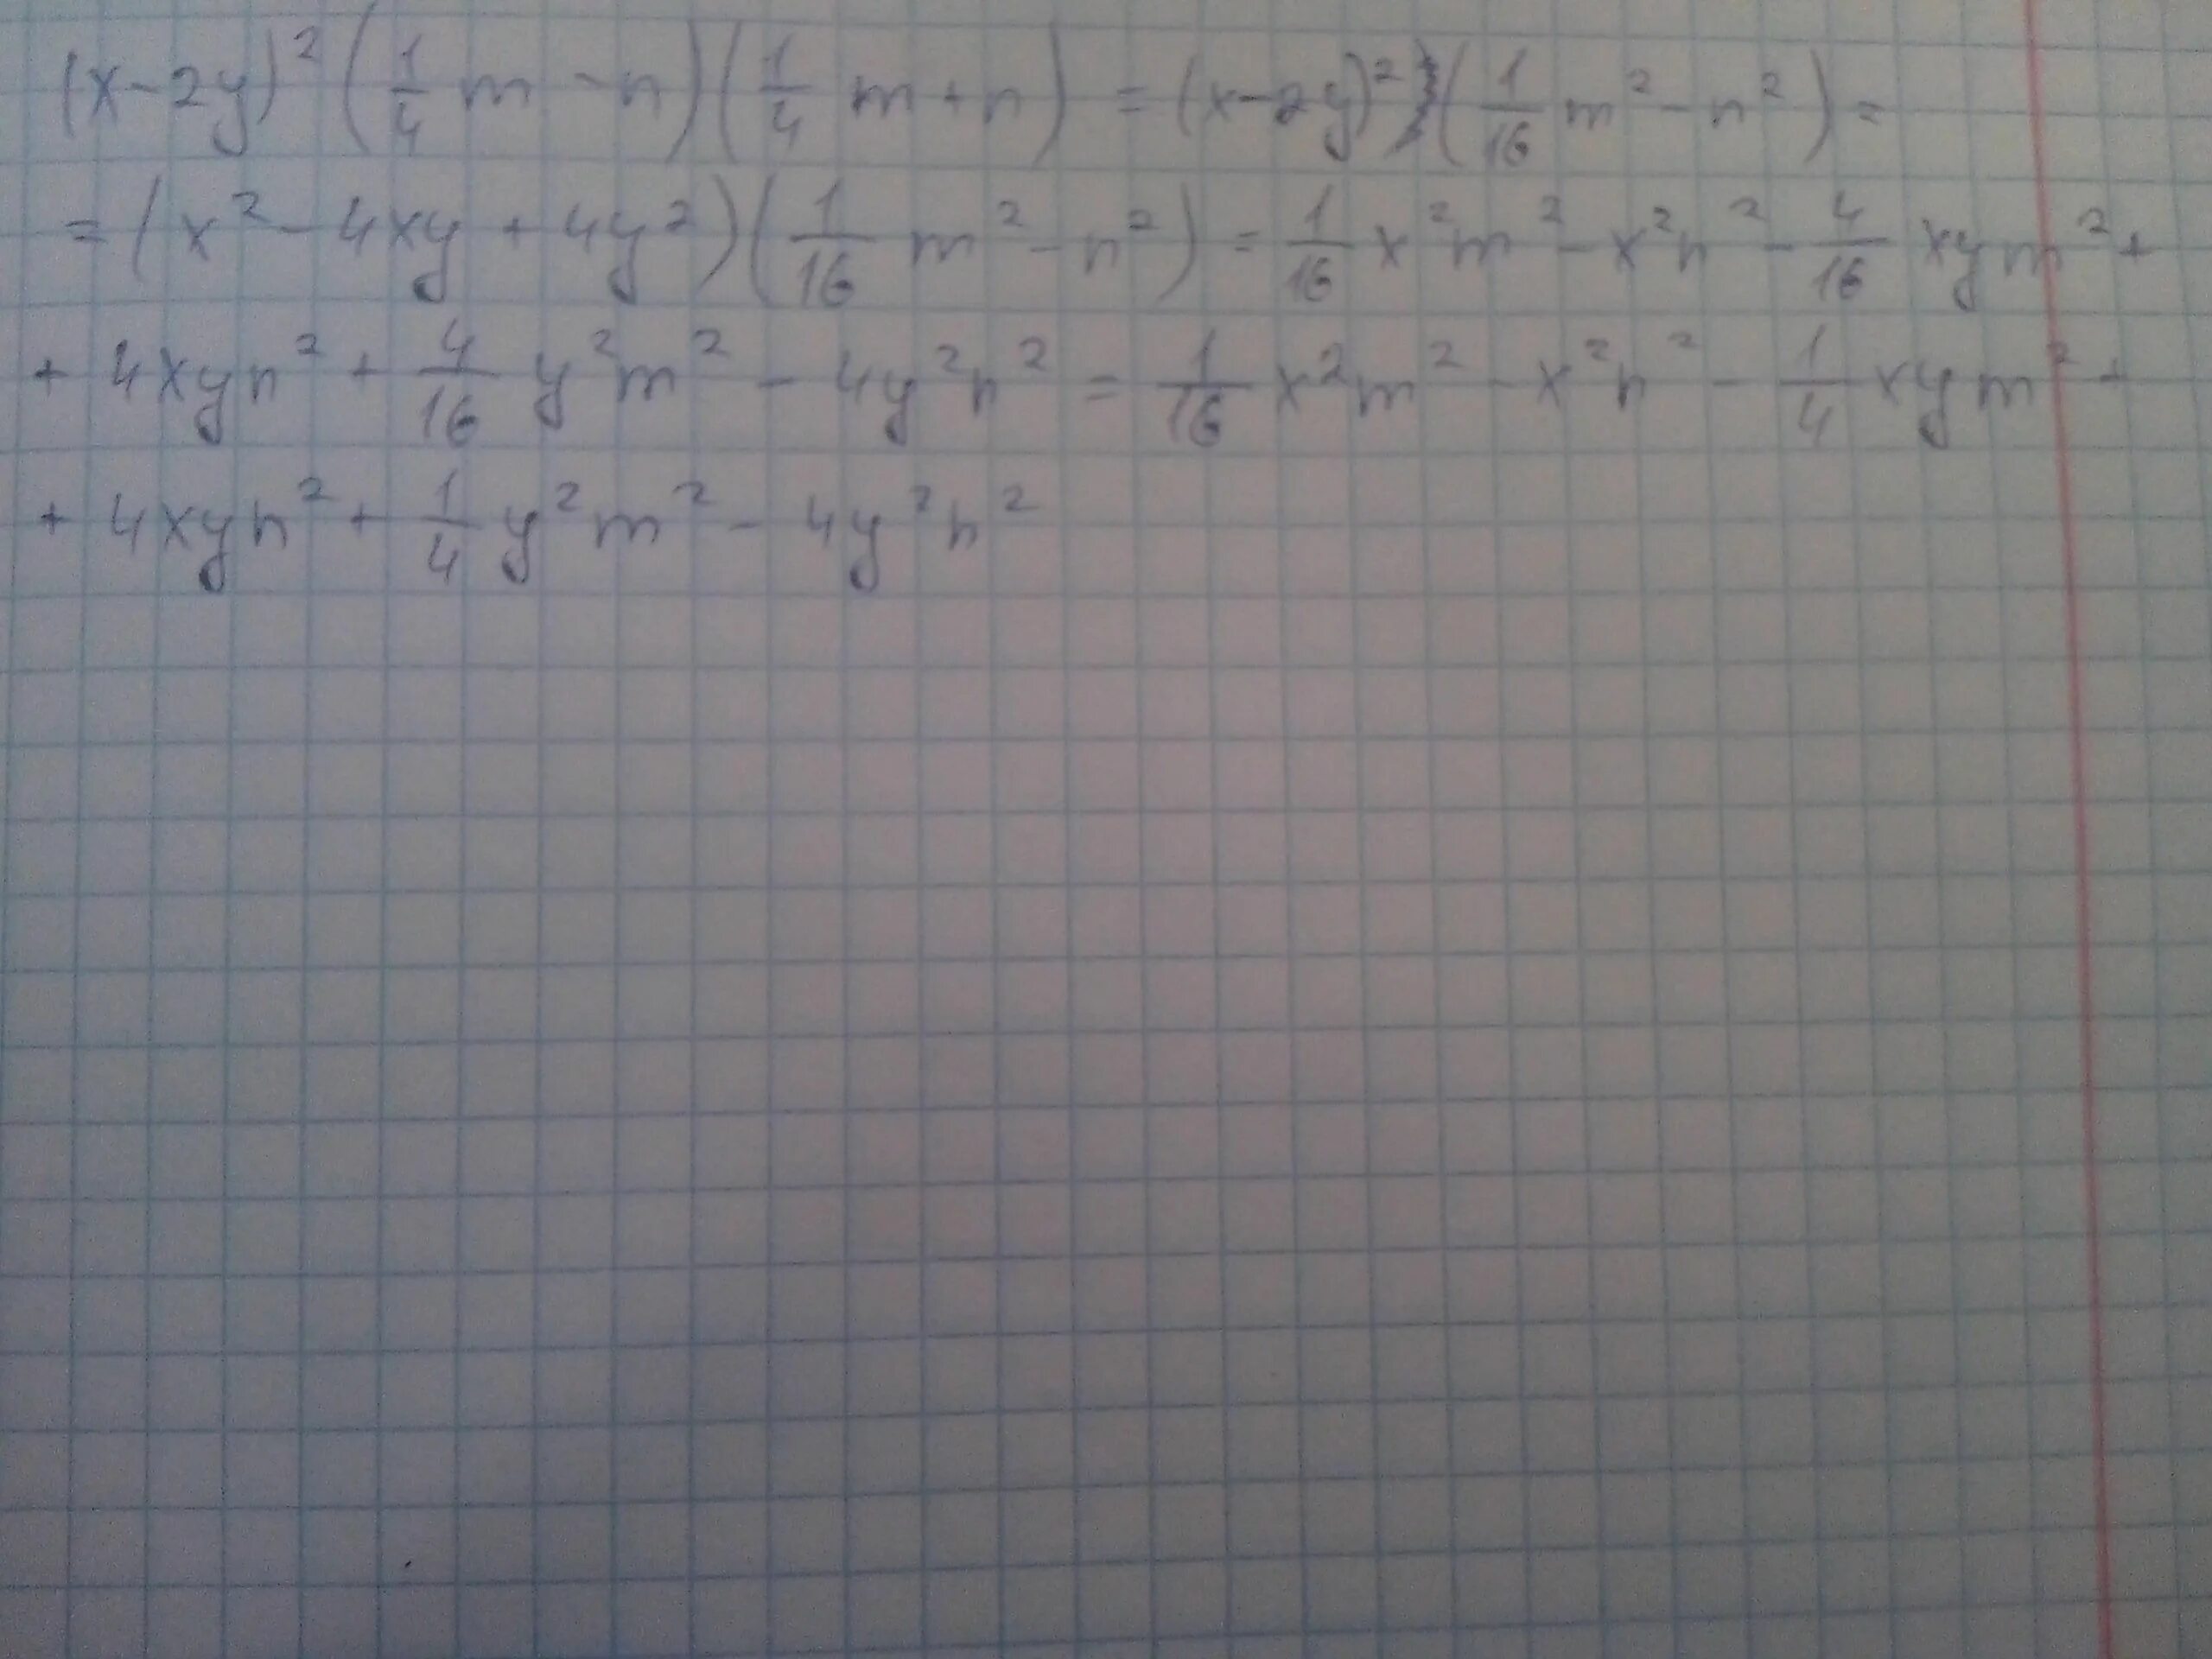 (x-2y)² (1/4 m - n) (1/4 m + n) = (x-2y)² (1/16 m² - n²) =
= (x² - 4xy + 4y²) (1/16 m² - n²) = 1/16 x²m² - x²n² - 4/16 xym² +
+ 4xyn² + 4/16 y²m² - 4y²n² = 1/16 x²m² - x²n² - 1/4 xym² +
+ 4xyn² + 1/4 y²m² - 4y²n²